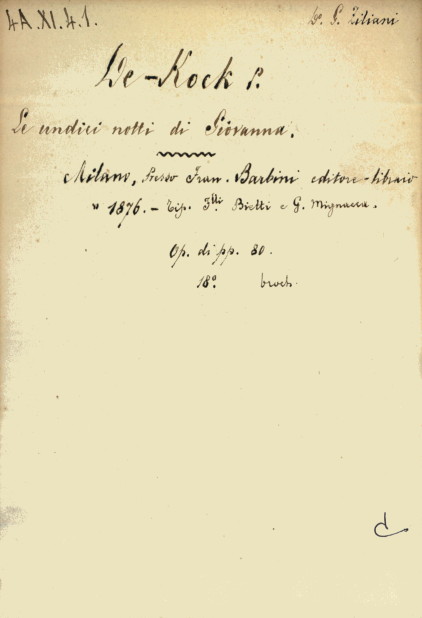 4A.XI.4.1.
Dr. G. Ziliani
De-Kock P.
Le undici notti di Giovanna.
Milano, Presso Fran. Barbini editore-libraio
" 1876. - Tip. Flli Bietti e G. Mignacca.
Op. di pp. 80.
18º. broch.
d